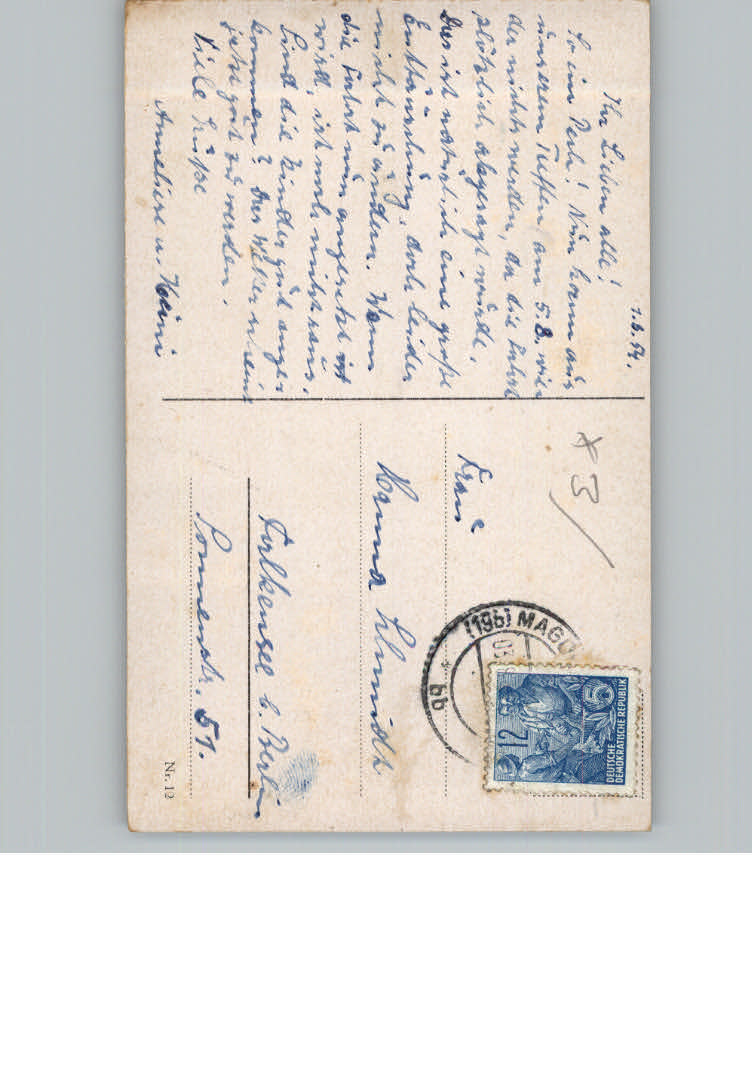 1.8.54.
Ihr Lieben alle!
So ein Pech! Nun kann aus
unserem Treffen am 5.8. wie
der nichts werden, da die Fahrt
plötzlich abgesagt wurde.
Das ist natürlich eine große
Enttäuschung, doch leider
nicht zu ändern. Wann
die Fahrt nun angesetzt ist
wird, ist noch nicht raus.
Sind die Kinder gut ange-
kommen? Das Wetter scheint
jetzt gut zu werden.
Viele Grüße
Anneliese u. Heini
* 3/
Frau
Hanna Schmidt
Falkensee b. Berlin
Sommerstr. 51.
(19b) MAGD
bb
12
5
DEUTSCHE
DEMOKRATISCHE REPUBLIK
Nr. 12